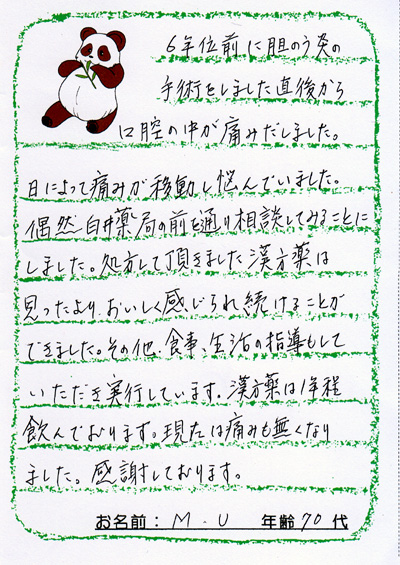 6年位前に胆のう炎の
手術をしました直後から
口腔の中が痛みだしました。
日によって痛みが移動し悩んでいました。
偶然臼井薬局の前を通り相談してみることに
しました。処方して頂きました漢方薬は
見ったより、おいしく感じられ続けることが
できました。その他、食事、生活の指導もして
いただき実行しています。漢方薬は1年程
飲んでおります。現在は痛みも無くなり
ました。感謝しております。
お名前：M.U 年齢70代